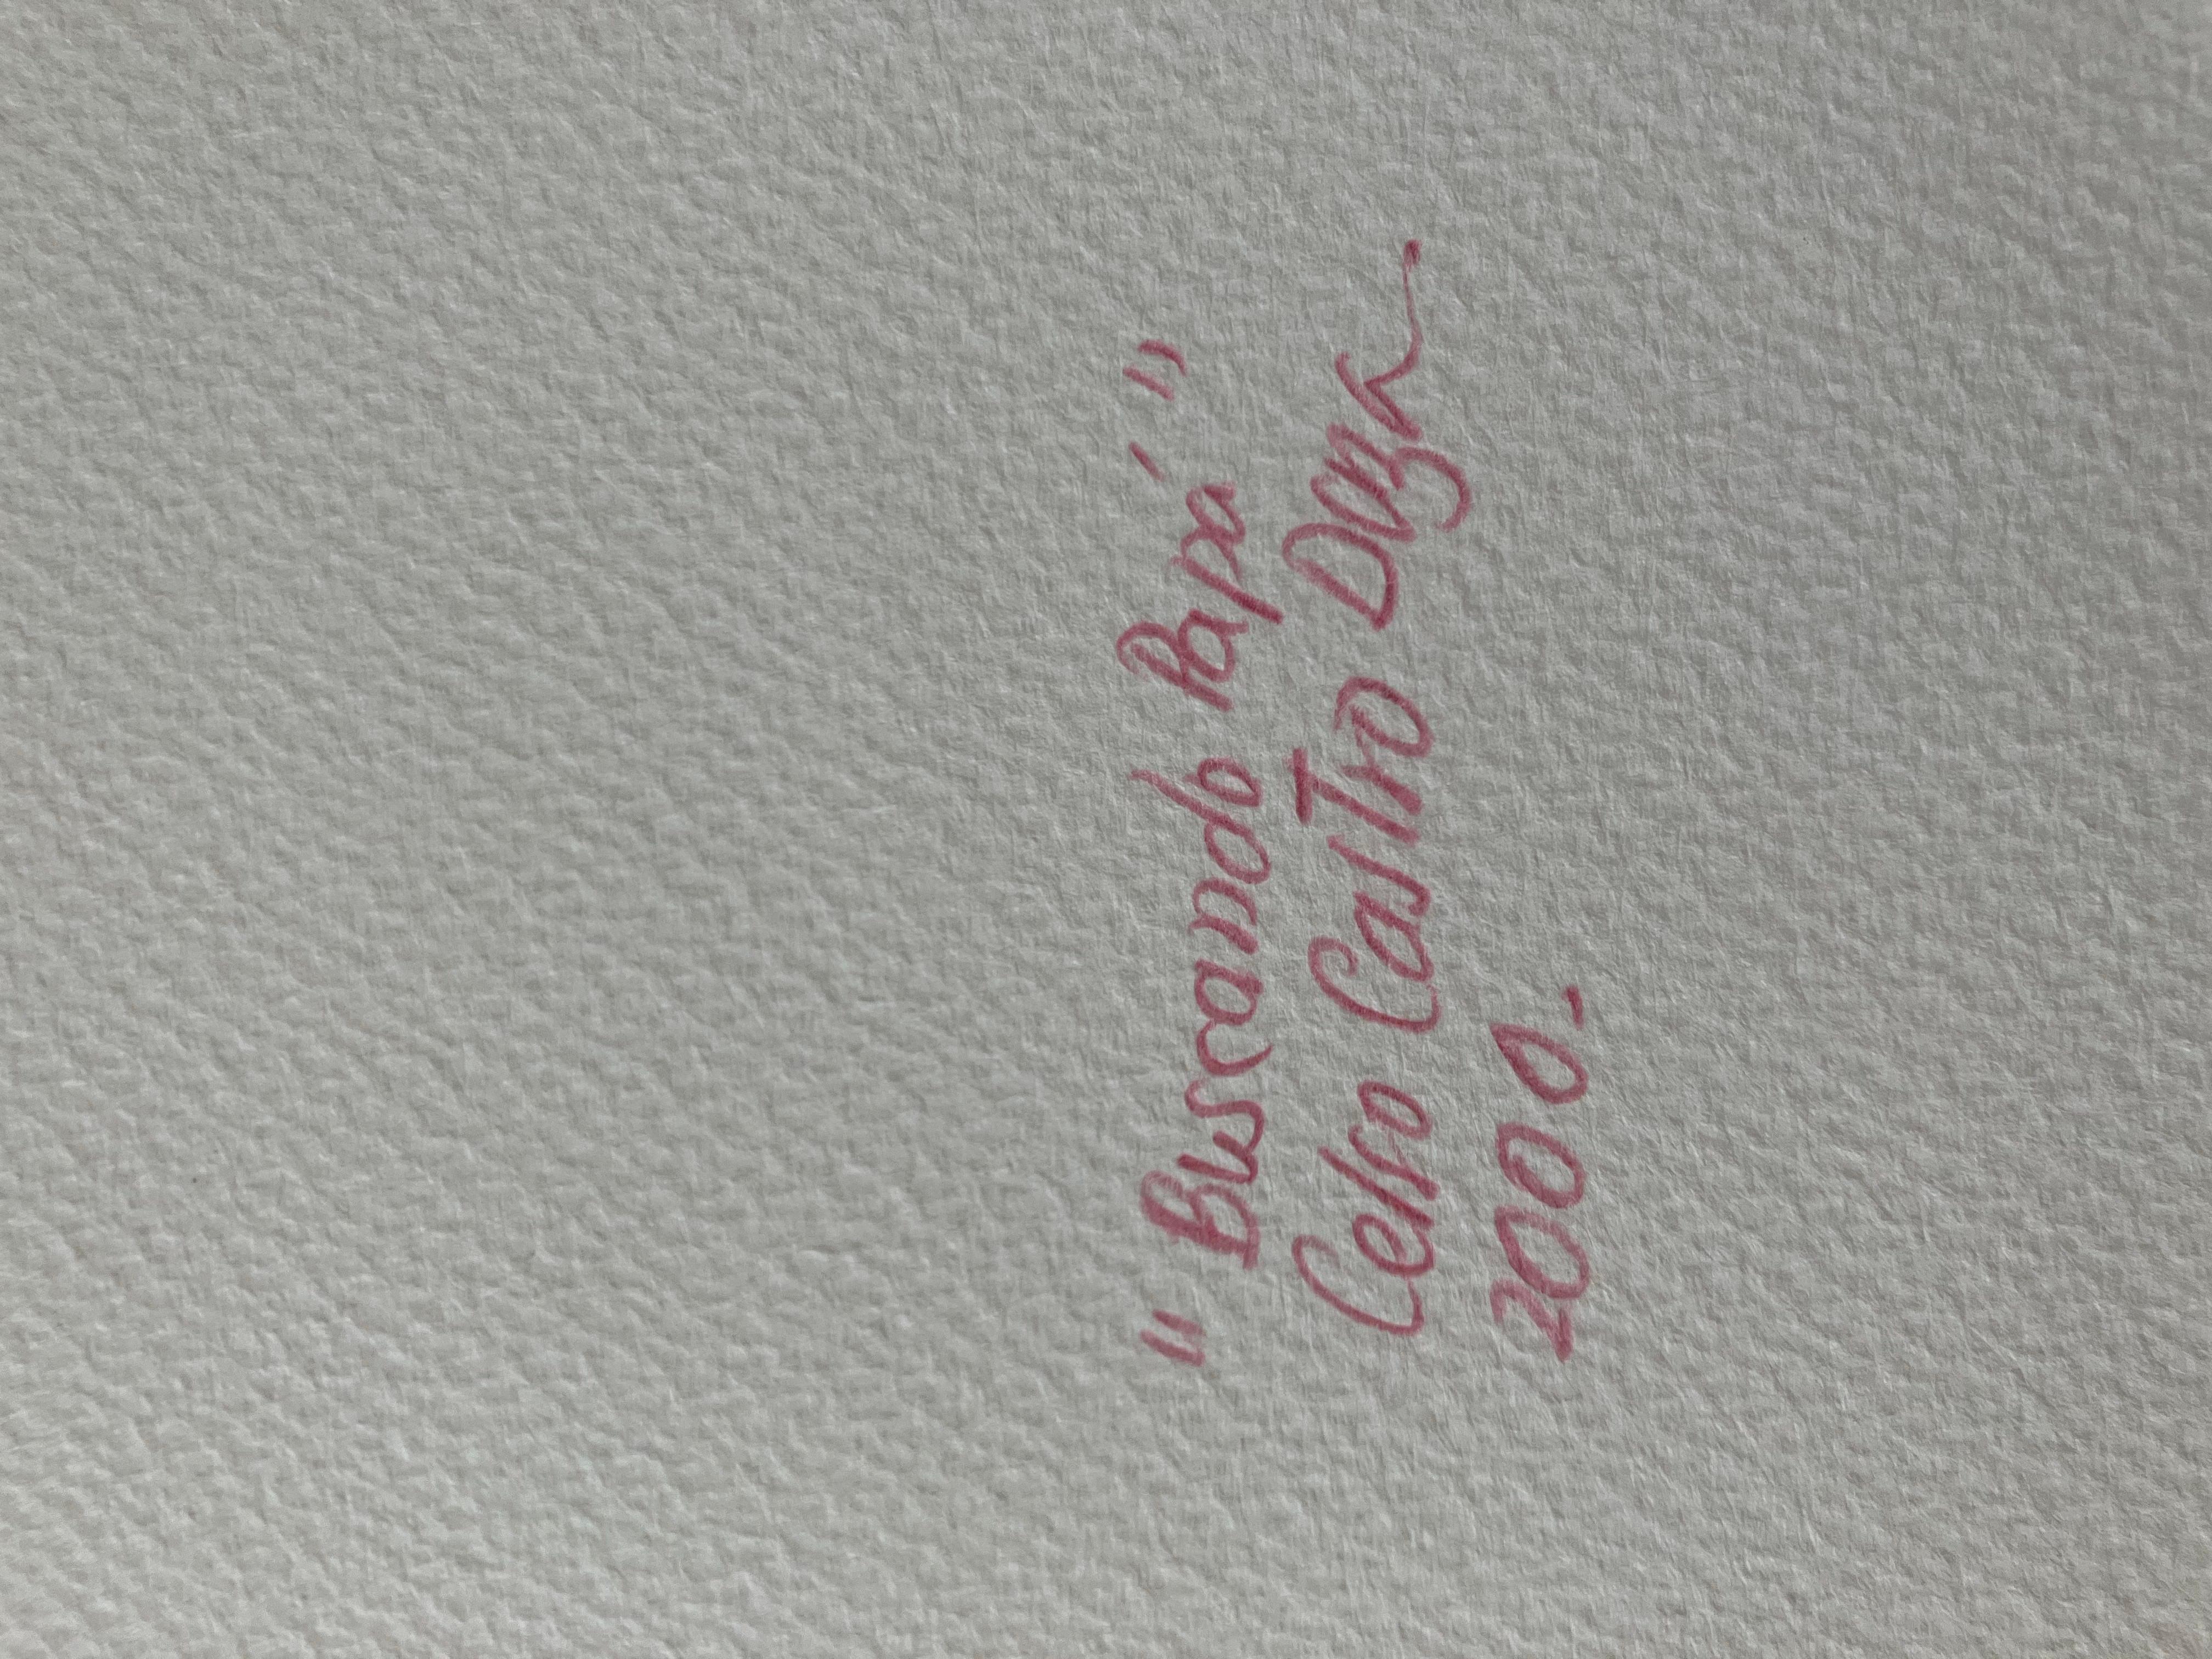 "Buscando Papá"
Celso Castro Daza
2000-